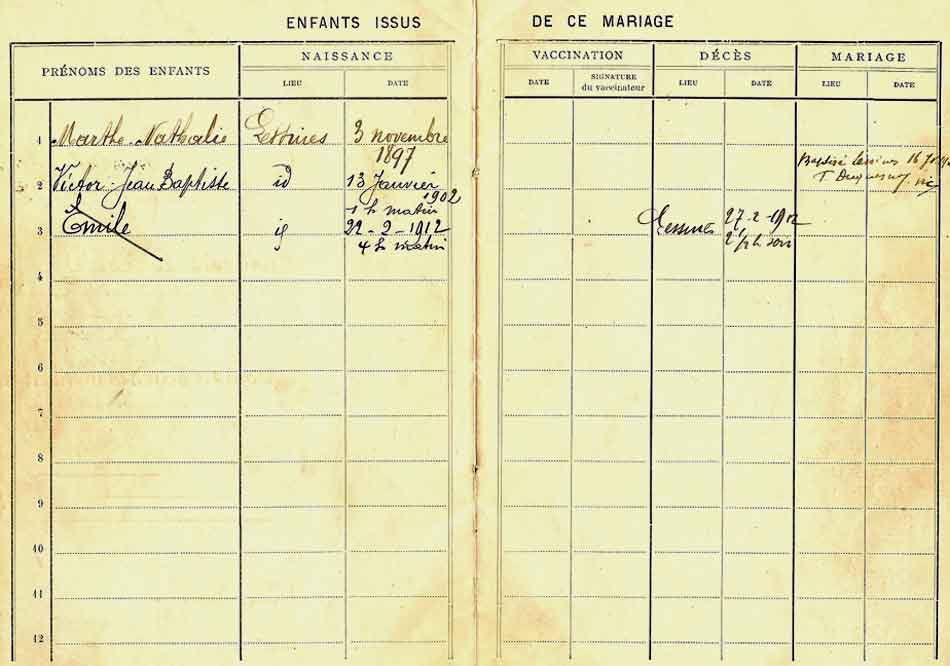 ENFANTS ISSUS DE CE MARIAGE
PRÉNOMS DES ENFANTS NAISSANCE VACCINATION DÉCÈS MARIAGE
LIEU DATE DATE SIGNATURE du vaccinateur LIEU DATE LIEU DATE
1 Marthe-Nathalie Lessines 3 novembre
1897
Baptisé Lessines 16
2 Victor-Jean Baptiste id 13 Janvier
1902
1 h matin
3 Emile 22-2-1912 Lessines 27-2-1912
4 h matin 2 1/2 h soir
4
5
6
7
8
9
10
11
12